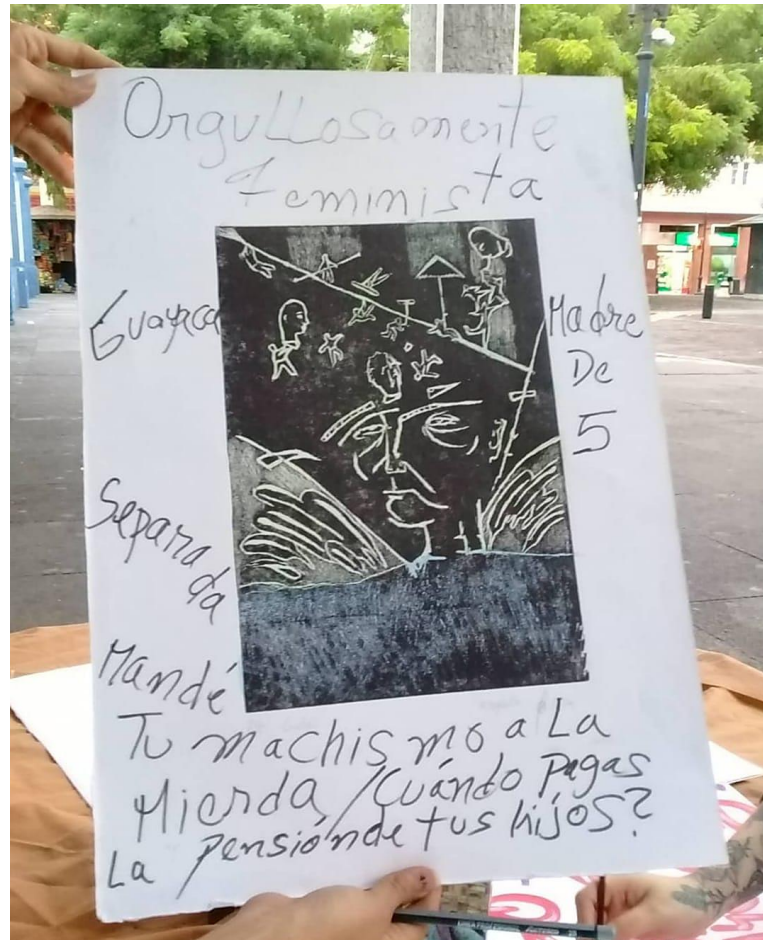 Orgullosamente
feminista
Guayaca
Madre
De
5
Separada
Mandé
Tu machismo a La
Mierda / Cuándo Pagas
La Pensión de tus hijos?